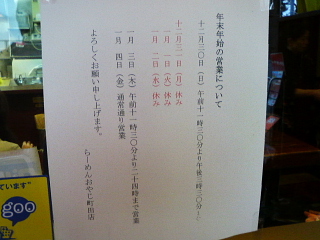 年末年始の営業について
十二月三〇日（日）午前十一時三〇分より午後三時三〇分まで
十二月三一日（月）休み
一月 一日（火）休み
一月 二日（水）休み
一月 三日（木）午前十一時三〇分より二十四時まで営業
一月 四日（金）通常通り営業
よろしくお願い申し上げます。
らーめんおやじ町田店
ています"
goo